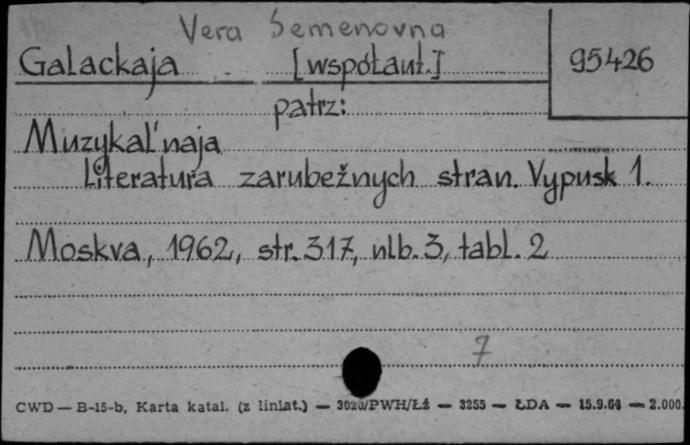 Vera Semenovna
Galackaja [współaut.] 95426
patrz:
Muzykal'naja
literatura zarubežnych stran. Vypusk 1.
Moskva, 1962, str. 317, nlb. 3, tabl. 2
7
CWD — B-15-b, Karta katal. (z liniat.) — 3020/PWH/Łź — 3255 — ŁDA — 15.9.64 — 2.000.